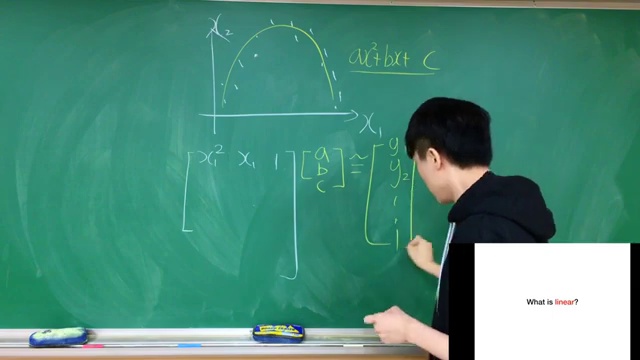 x₂
ax²+bx+ c
x₁
[x₁² x₁ 1] [a b c] ≅ [y y₂ ⋮]
What is linear?